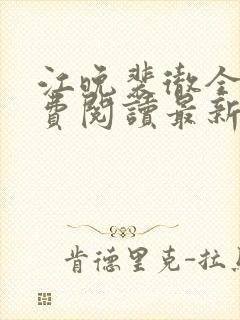 江晚裴徹全
費閱讀最新
肯德里克-拉